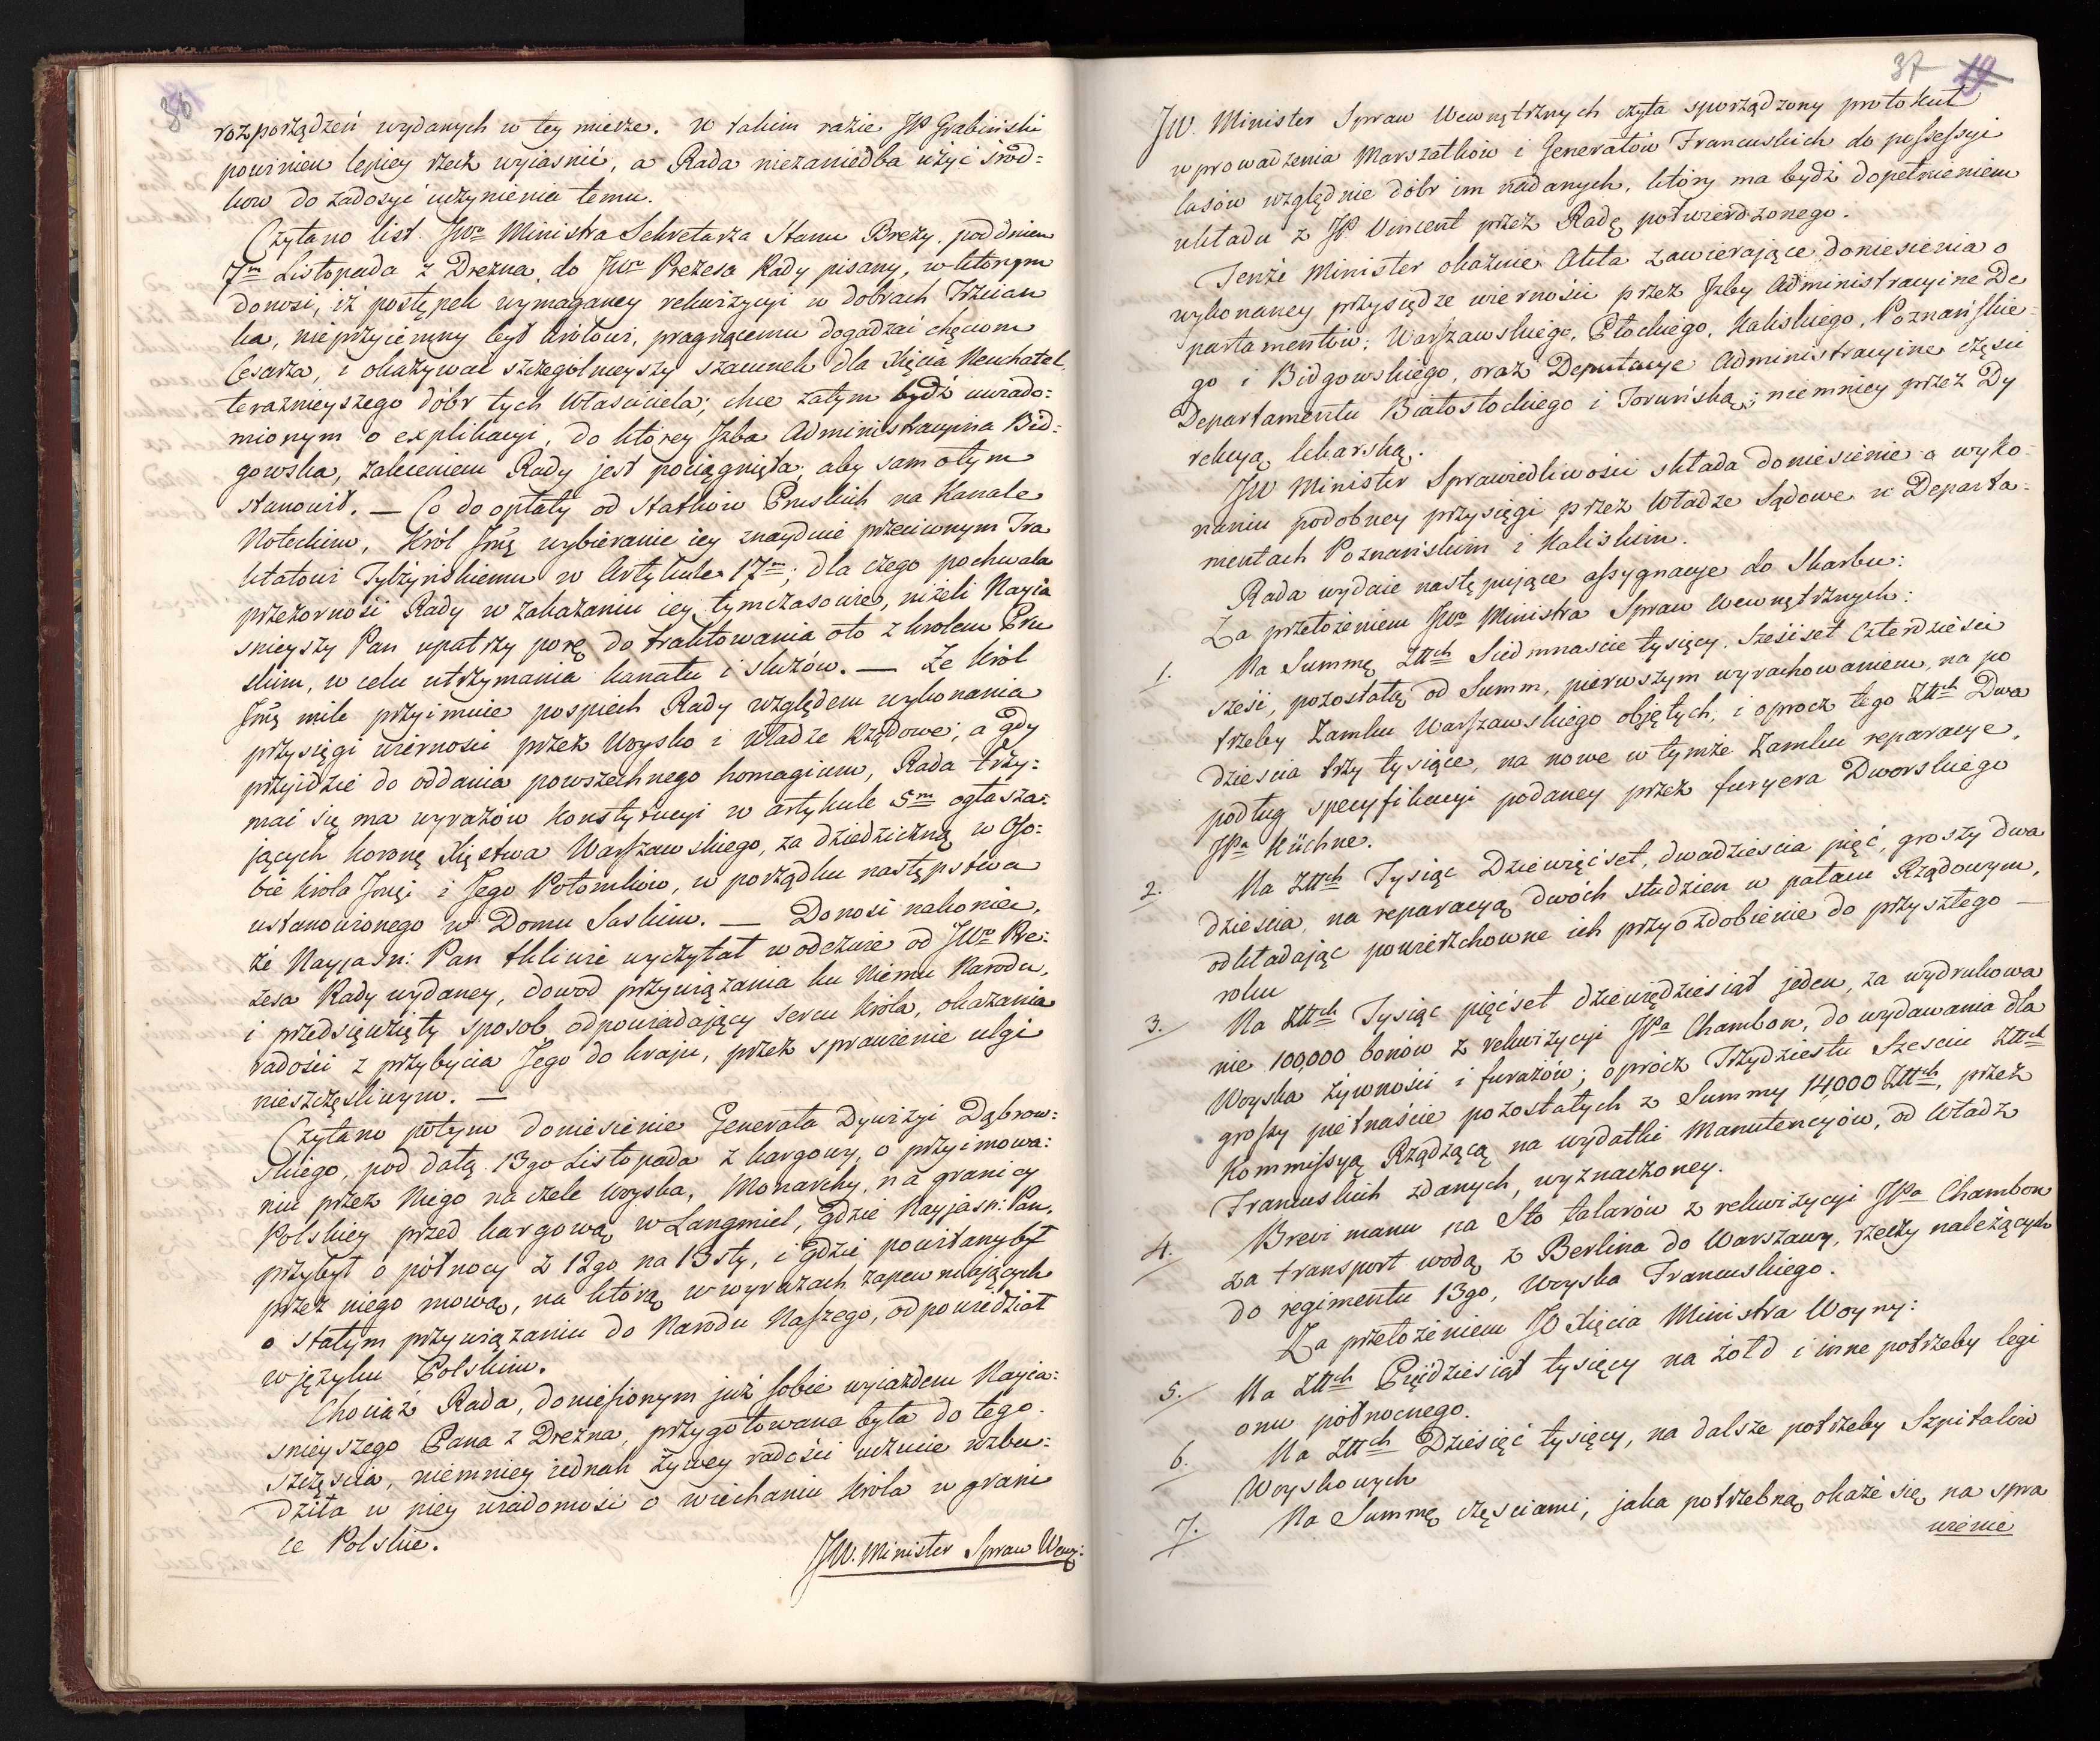 36
rozporządzeń wydanych w tey mierze. W takim razie JP Grabiński
powinien lepiey rzecz wyiasnić, a Rada niezaniedba użyć środ=
kow do zadosyć uczynienia temu.
Czytano list JWo Ministra Sekretarza Stanu Brezy, pod dniem
7m Listopada z Drezna, do JWo Prezesa Rady pisany, w którym
donosi, iż postępek wymaganey rekwizycyi w dobrach Trzcian
ka, nieprzyiemny był Królowi, pragnącemu dogadzać chęciom
Cesarza, i okazywać szczegolnieyszy szacunek dla Xięcia Neuchatel,
terazniejszego dóbr tych własciciela; chce zatym bydź uwiado=
mionym o explikacyi, do którey Izba Administracyina Bid=
gowska, zaleceniem Rady jest pociągnięta; aby sam o tym
stanowił. — Co do opłaty od statków Pruskich na Kanale
Noteckim, Król Jmć wybieranie iey znayduie przeciwnym Tra
ktatowi Tylżyńskiemu w Artykule 17m; dla czego pochwala
przezorność Rady w zakazaniu iey tymczasowie, niżeli Nayia
snieyszy Pan upatrzy porę do traktowania oto z krolem Pru
skim, w celu utrzymania kanału i sluzów. — Ze Król
Jmć mile przyimuie pospiech Rady względem wykonania
przysięgi wierności przez Woysko i władze Rządowe; a gdy
przyidzie do oddania powszechnego homagium, Rada trzy=
mać się ma wyrazów Konstytucyi w artykule 5m ogłasza=
jących koronę Xięstwa Warszawskiego, za dziedziczną w Oso=
bie Króla Jmci i Jego Potomków, w porządku następstwa
ustanowionego w Domu Saskim. — Donosi nakoniec,
że Nayjasn: Pan tkliwie wyczytał w odezwie od JWo Pre=
zesa Rady wydaney, dowod przywiązania ku Niemu Narodu,
i przedsięwzięty sposob odpowiadający sercu Króla, okazania
radości z przybycia Jego do kraju, przez sprawienie ulgi
nieszczęsliwym. —
Czytano potym doniesienie Generała Dywizyi Dąbrow=
skiego, pod datą 13go Listopada z kargowy, o przyimowa=
niu przez Niego na czele woyska, Monarchy, na granicy
Polskiey przed kargową w Langmiel, gdzie Nayjasn: Pan,
przybył o północy z 12go na 13sty, i gdzie powitany był
przez niego mową, na którą w wyrazach zapewniających
o stałym przywiązaniu do Narodu Naszego, odpowiedział
w języku Polskim.
Chociaż Rada, doniesionym już sobie wyiazdem Nayia=
snieyszego Pana z Drezna, przygotowana była do tego
szczęscia, niemniey iednak żywey radości uczucie wzbu=
dziła w niey wiadomość o wiechaniu Króla w grani
ce Polskie.
JW. Minister Spraw Wewę:
37
JW. Minister Spraw Wewnętrznych czyta sporządzony protokuł
wprowadzenia Marszałków i Generałów Francuskich do possessyi
lasów względnie dóbr im nadanych, który ma bydź dopełnieniem
układu z JP. Vincent przez Radę potwierdzonego.
Tenże Minister okazuie Akta zawierające doniesienia o
wykonaney przysiędze wierności przez Izby Administracyine De
partamentów: Warszawskiego, Płockiego, Kaliskiego, Poznańskie=
go i Bidgowskiego, oraz Deputacye Administracyine części
Departamentu Białostockiego i Toruńską; niemniey przez Dy
rekcyą lekarską.
JW Minister Sprawiedliwości składa doniesienie o wyko=
naniu podobney przysięgi przez Władze Sądowe w Departa=
mentach Poznańskim i Kaliskim.
Rada wydaie następujące assygnacye do Skarbu:
Za przełożeniem JWo Ministra Spraw Wewnętrznych:
1. Na Summę Złłch Siedmnascie tysięcy, Sześćset Czterdzieści
sześć, pozostałą od Summ, pierwszym wyrachowaniem, na po
trzeby Zamku Warszawskiego objętych, i oprocz tego Złłch Dwa
dziescia trzy tysiące, na nowe w tymże Zamku reparacye,
podług specyfikacyi podaney przez furyera Dworskiego
JPa Küchne.
2. Na Złłch Tysiąc Dziewięćset, dwadziescia pięć, groszy dwa
dziescia, na reparacyą dwóch studzien w pałacu Rządowym,
odkładając powierzchowne ich przyozdobienie do przyszłego —
roku
3. Na Złłch Tysiąc pięćset dziewiędziesiąt jeden, za wydrukowa
nie 100,000 bonów z rekwizycyi JPa Chambon, do wydawania dla
Woyska żywności i furażów; oprócz Trzydziestu Szesciu Złłch
groszy pietnaście pozostałych z Summy 14,000 Złłch, przez
Kommissyą Rządzącą na wydatki Manutencyów, od Władz
Francuskich zdanych, wyznaczoney.
4. Brevi manu na Sto talarów z rekwizycyi JPa Chambon
za transport wodą z Berlina do Warszawy, rzeczy należących
do regimentu 13go, Woyska Francuskiego.
Za przełożeniem JO Xięcia Ministra Woyny:
5. Na Złłch Pięćdziesiąt tysięcy na żołd i inne potrzeby legi
onu północnego.
6. Na Złłch Dziesięć tysięcy, na dalsze potrzeby Szpitalów
Woyskowych
7. Na Summę częściami, jaka potrzebną okaże się, na spra
wienie